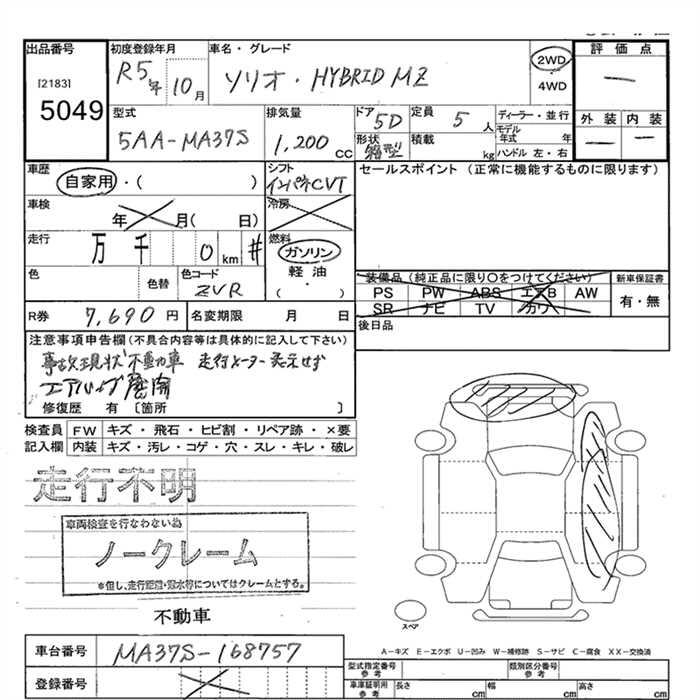 出品番号 初度登録年月 車名・グレード 評価点
[2183] R5年 10月 ソリオ・HYBRID MZ 2WD ・ 4WD ー
5049
型式 排気量 ドア 定員 ディーラー・並行 外装 内装
5AA-MA37S 1,200cc 5D 5人 モデル年式 年 ー ー
形状 箱型 積載 kg ハンドル 左・右
車歴 シフト セールスポイント (正常に機能するものに限ります)
自家用・( ) インパネCVT
車検 冷房
年 月( 日)
走行 燃料
万 千 0 km # ガソリン
軽油
色 色替 色コード ・( )
ZVR
装備品 (純正品に限り○をつけてください) 新車保証書
PS PW ABS エアB AW 有・無
SR ナビ TV カワ
R券 7,690円 名変期限 月 日 後日品
注意事項申告欄(不具合内容等は具体的に記入して下さい)
事故現状 不動車 走行メーター表示せず
エアバッグ展開
修復歴 有 〔箇所 〕
検査員 FW キズ・飛石・ヒビ割・リペア跡・×要
記入欄 内装 キズ・汚レ・コゲ・穴・スレ・キレ・破レ
走行不明
車両検査を行なわない為
ノークレーム
*但し、走行距離・冠水等についてはクレームとする。
不動車
スペア
A-キズ E-エクボ U-凹み W-補修跡 S-サビ C-腐食 XX-交換済
車台番号 MA37S-168757
型式指定番号 参考 類別区分番号 参考
登録番号
車庫証明用 参考 長さ cm 幅 cm 高さ cm